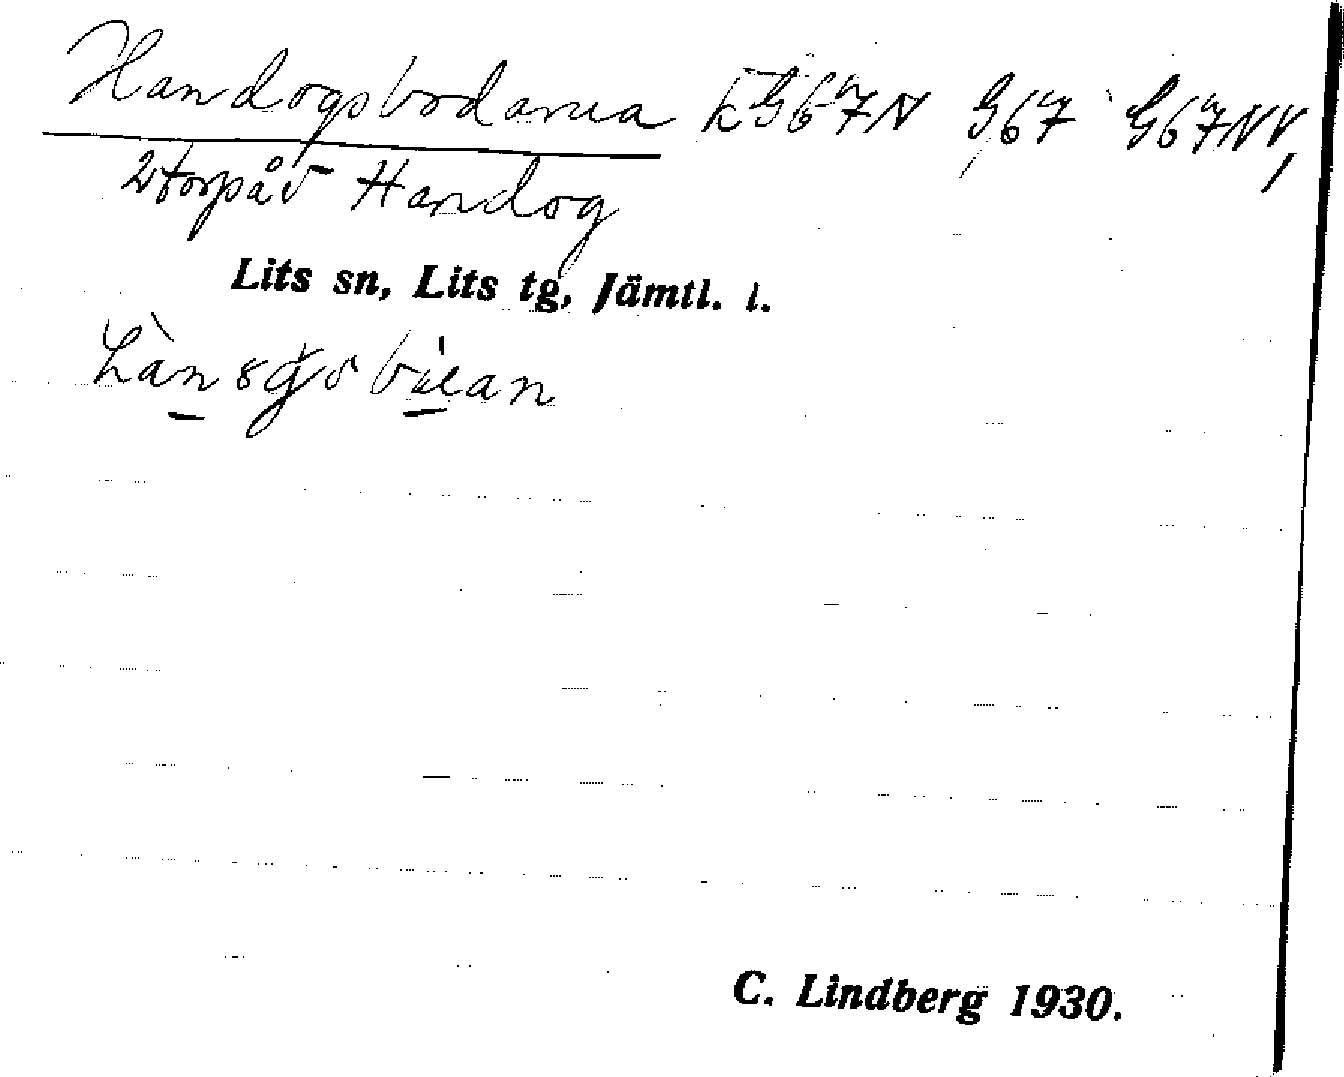 Handogsbodarna G67N G67 G67NV,
2 torp å Handog
Lits sn, Lits tg, Jämtl. l.
C. Lindberg 1930.